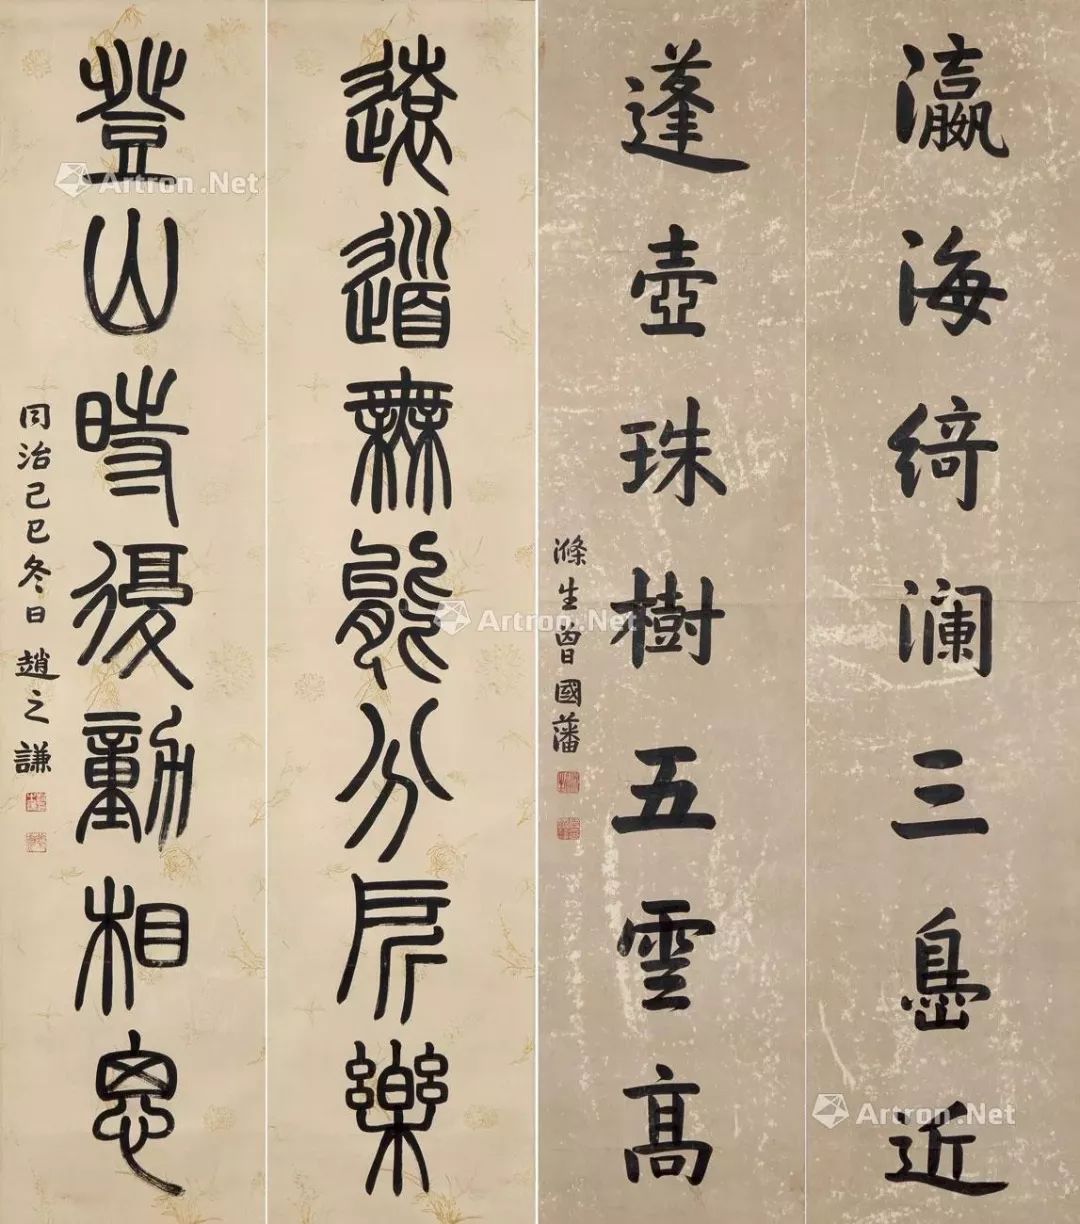 瀛海綺瀾三島近
蓬壺珠樹五雲高
滌生曾國藩
遠道無能分所樂
登山時復動相思
同治己巳冬日 趙之謙
Artron.Net
Artron.Net
Artron.Net